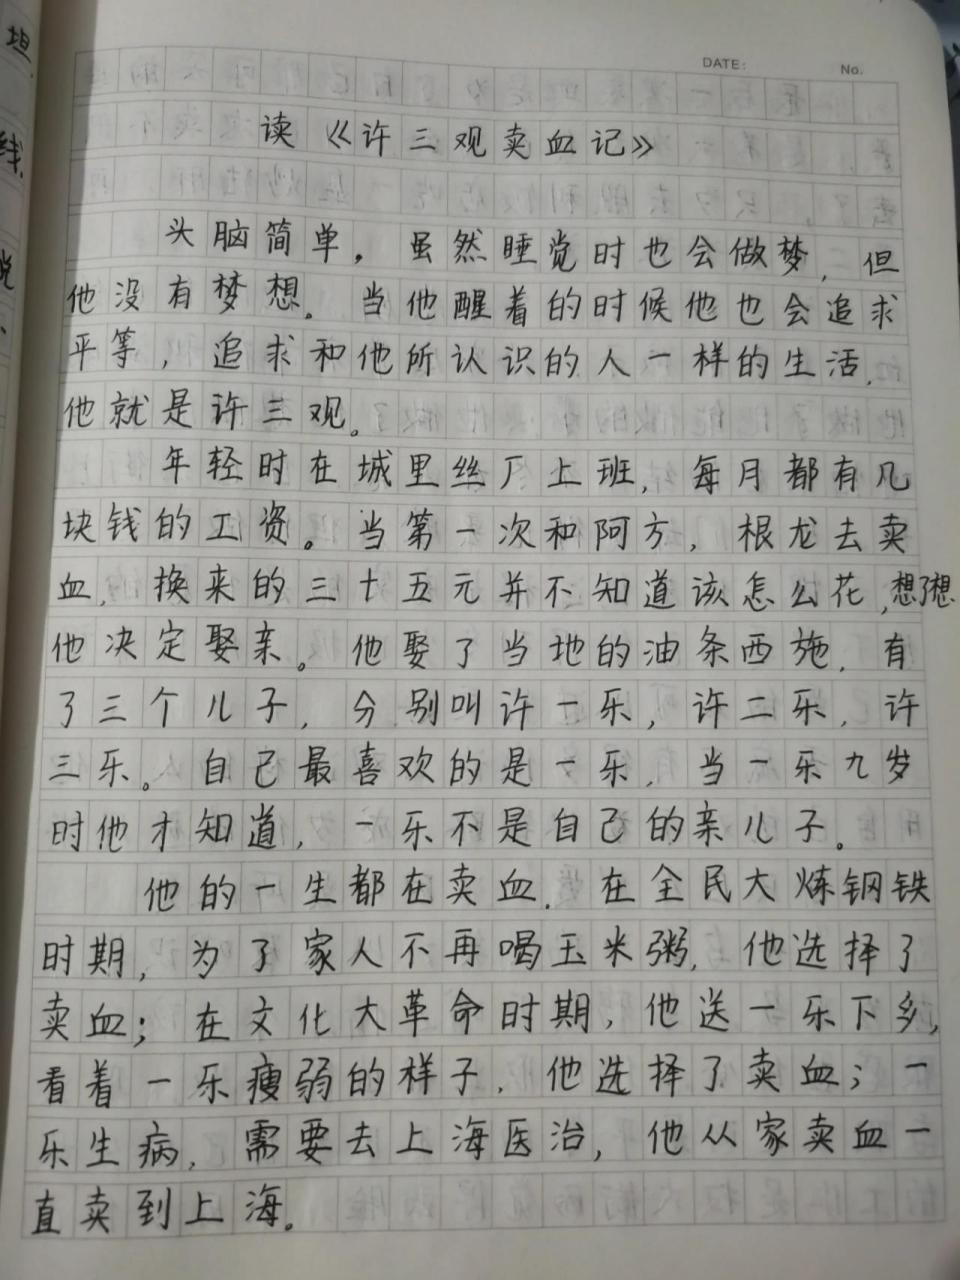 DATE: No.
读《许三观卖血记》
头脑简单，虽然睡觉时也会做梦，但
他没有梦想。当他醒着的时候他也会追求
平等，追求和他所认识的人一样的生活，
他就是许三观。
年轻时在城里丝厂上班，每月都有几
块钱的工资。当第一次和阿方，根龙去卖
血，换来的三十五元并不知道该怎么花，想了想
他决定娶亲。他娶了当地的油条西施，有
了三个儿子，分别叫许一乐，许二乐，许
三乐。自己最喜欢的是一乐，当一乐九岁
时他才知道，一乐不是自己的亲儿子。
他的一生都在卖血．在全民大炼钢铁
时期，为了家人不再喝玉米粥，他选择了
卖血；在文化大革命时期，他送一乐下乡，
看着一乐瘦弱的样子，他选择了卖血；一
乐生病，需要去上海医治，他从家卖血一
直卖到上海。
坦
线